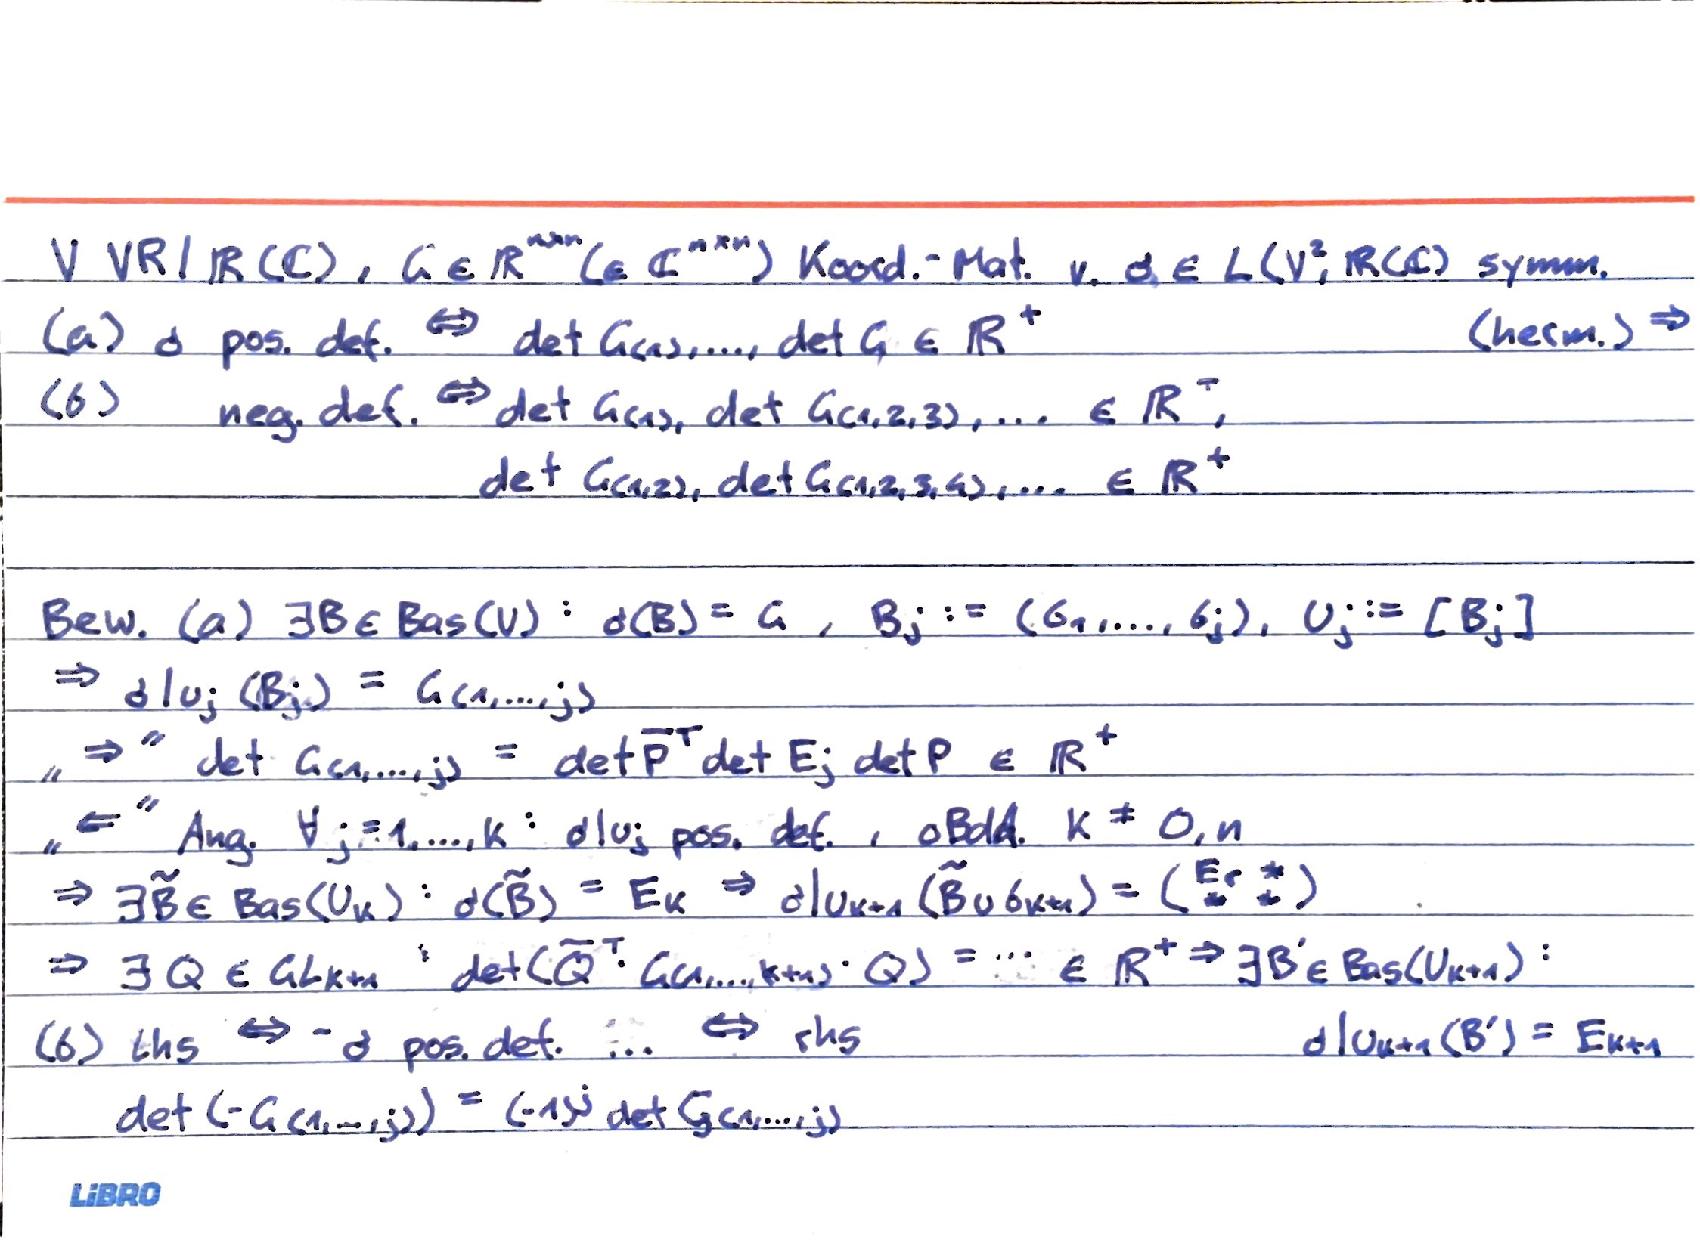 V VR/ℝ(ℂ), G ∈ ℝⁿˣⁿ (∈ ℂⁿˣⁿ) Koord.-Mat. v. σ ∈ L(V²; ℝ(ℂ)) symm.
(a) σ pos. def. ⇔ det G⟨1⟩, ..., det G ∈ ℝ⁺ (herm.) ⇒
(b) neg. def. ⇔ det G⟨1⟩, det G⟨1,2,3⟩, ... ∈ ℝ⁻,
det G⟨1,2⟩, det G⟨1,2,3,4⟩, ... ∈ ℝ⁺
Bew. (a) ∃B ∈ Bas(V) : σ(B) = G , B_j := (b₁, ..., b_j), U_j := [B_j]
⇒ σ|U_j (B_j) = G⟨1,...,j⟩
„⇒" det G⟨1,...,j⟩ = det P̅ᵀ det E_j det P ∈ ℝ⁺
„⇐" Ang. ∀j=1,...,k : σ|U_j pos. def. , oBdA. k ≠ 0, n
⇒ ∃B̃ ∈ Bas(U_k) : σ(B̃) = E_k ⇒ σ|U_{k+1} (B̃ ∪ b_{k+1}) = (E_r * * *)
⇒ ∃Q ∈ GL_{k+1} : det(Q̅ᵀ · G⟨1,...,k+1⟩ · Q) = ... ∈ ℝ⁺ ⇒ ∃B' ∈ Bas(U_{k+1}) :
(b) lhs ⇔ -σ pos. def. ... ⇔ rhs σ|U_{k+1} (B') = E_{k+1}
det(-G⟨1,...,j⟩) = (-1)ʲ det G⟨1,...,j⟩
LiBRO